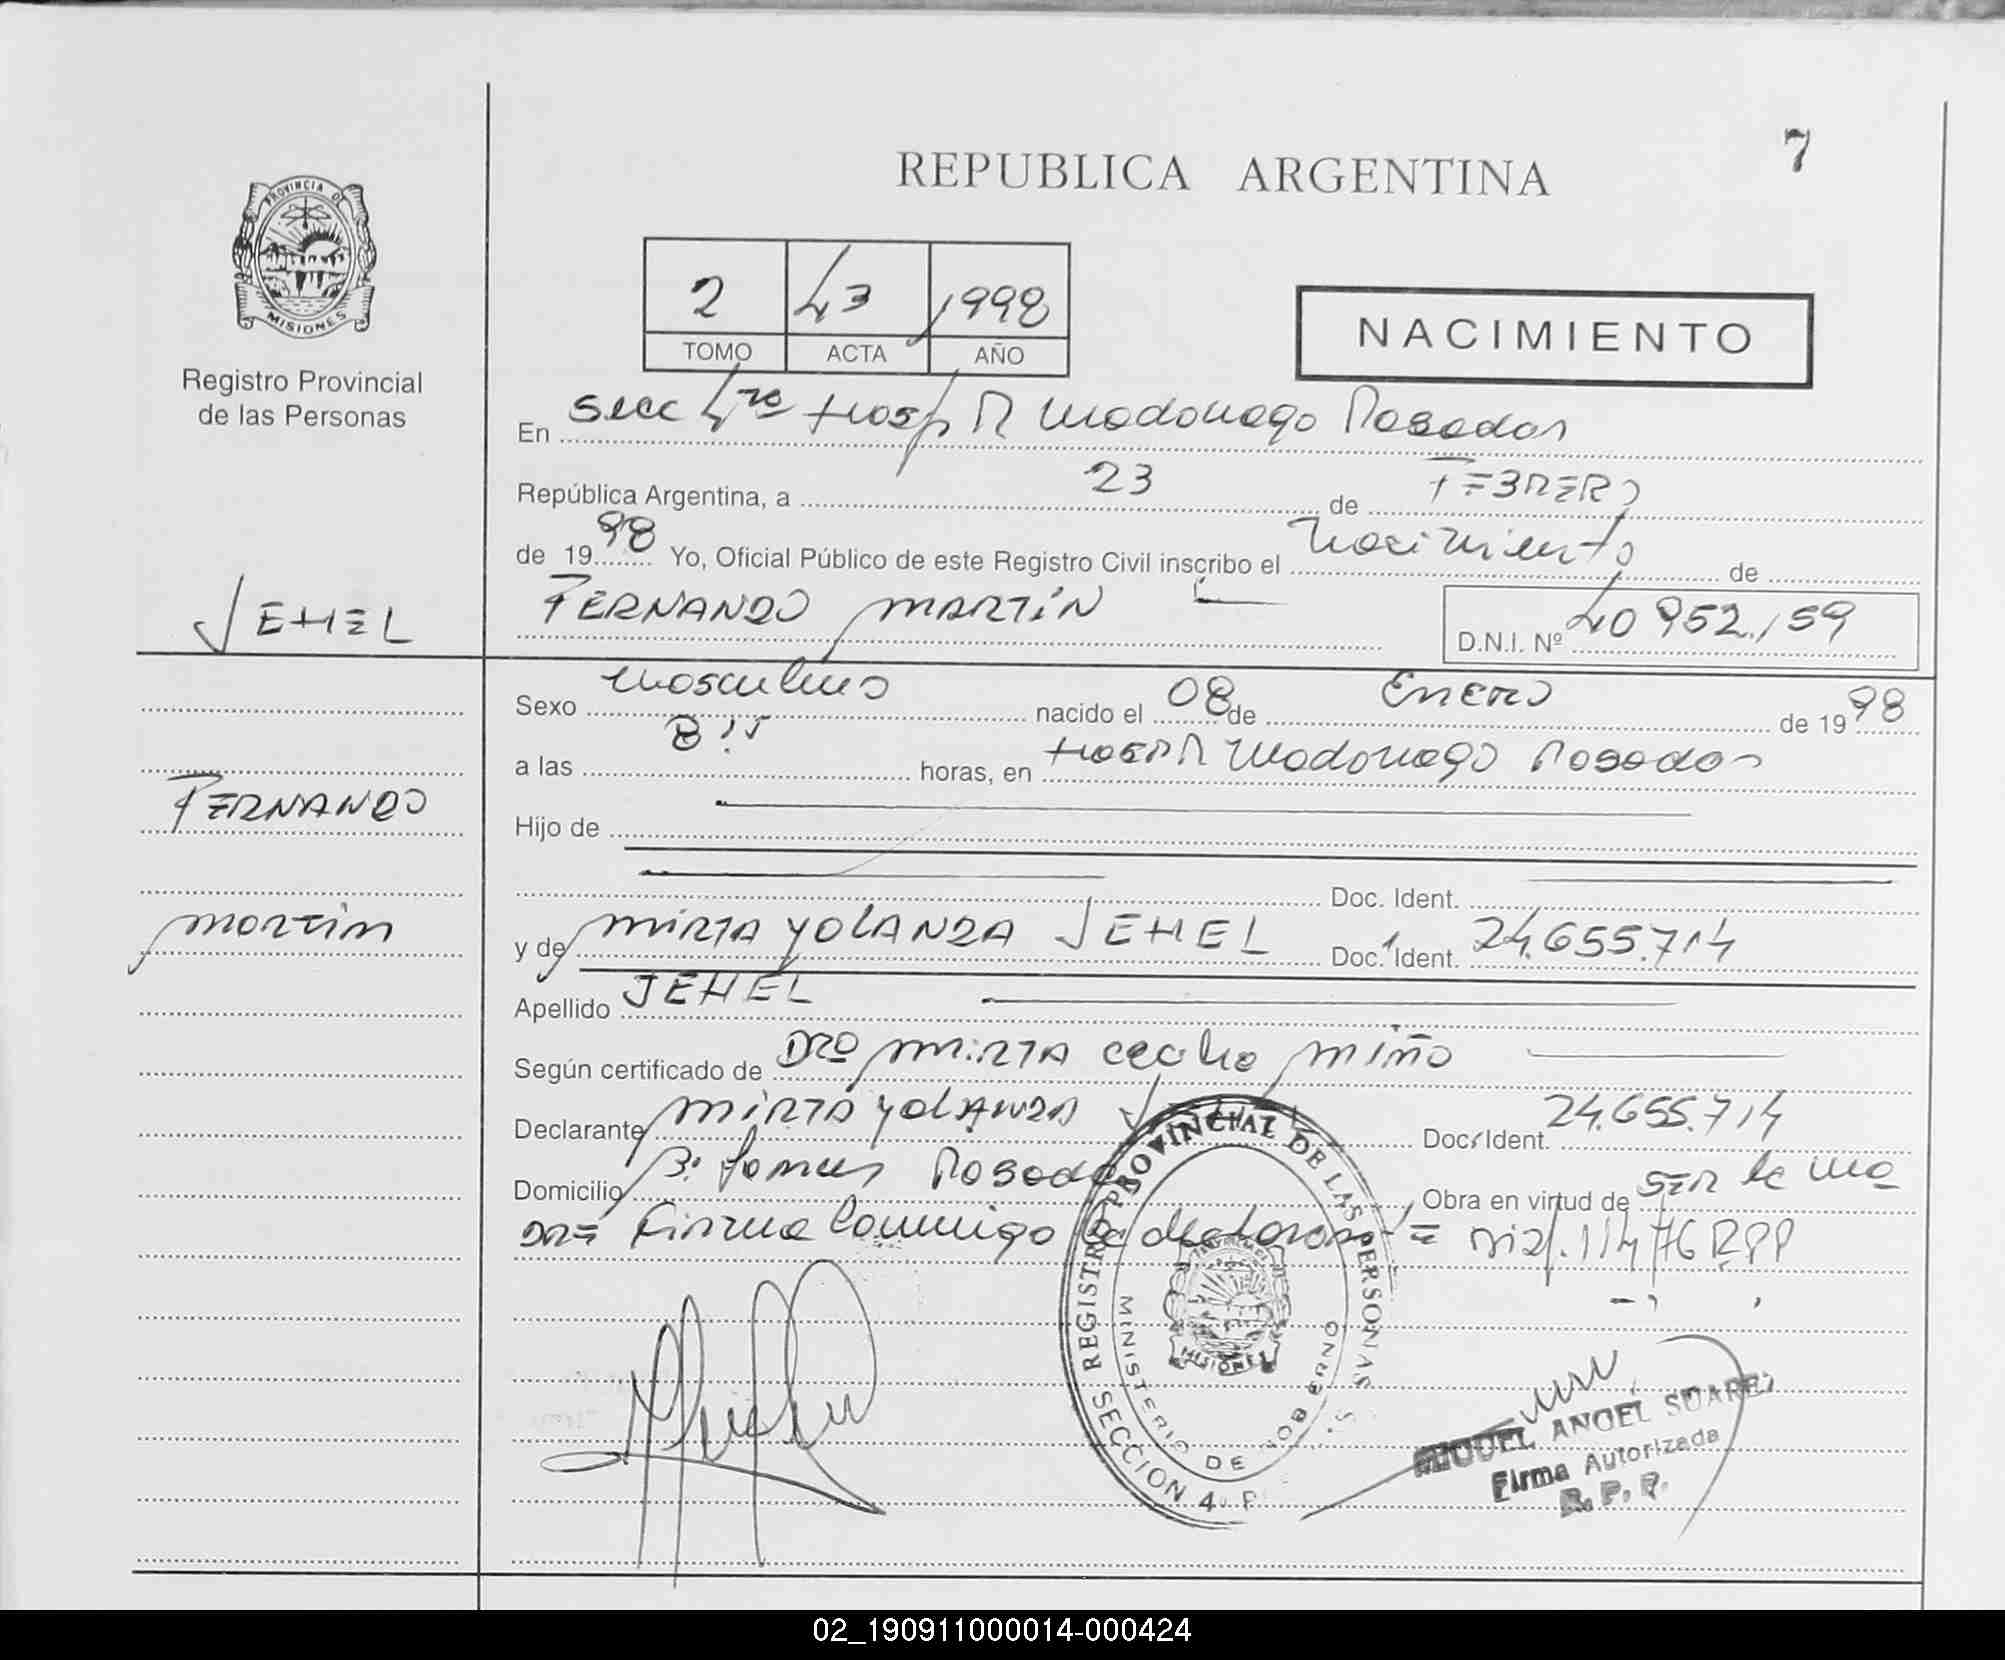 7
REPUBLICA ARGENTINA
PROVINCIA DE
MISIONES
Registro Provincial
de las Personas
2 43 1998
TOMO ACTA AÑO
NACIMIENTO
En Secc 4ta Hosp R Madariaga Posadas
República Argentina, a 23 de FEBRERO
de 1998 Yo, Oficial Público de este Registro Civil inscribo el Nacimiento de
JEHEL
FERNANDO MARTIN
D.N.I. Nº 40 952.159
Sexo Masculino nacido el 08 de Enero de 1998
a las 8:15 horas, en Hosp R Madariaga Posadas
FERNANDO
Hijo de
Doc. Ident.
MARTIN
y de MIRTA YOLANDA JEHEL Doc. Ident. 24.655.714
Apellido JEHEL
Según certificado de Dra MIRTA Cecilia MIÑO
Declarante MIRTA YOLANDA Doc. Ident. 24.655.714
Domicilio Posadas Obra en virtud de SER la ma
DRE Firma Conmigo la declarante
REGISTRO PROVINCIAL DE LAS PERSONAS
SECCION 4
MINISTERIO DE GOBIERNO
MISIONES
MIGUEL ANGEL SUAREZ
Firma Autorizada
R. P. P.
02_190911000014-000424